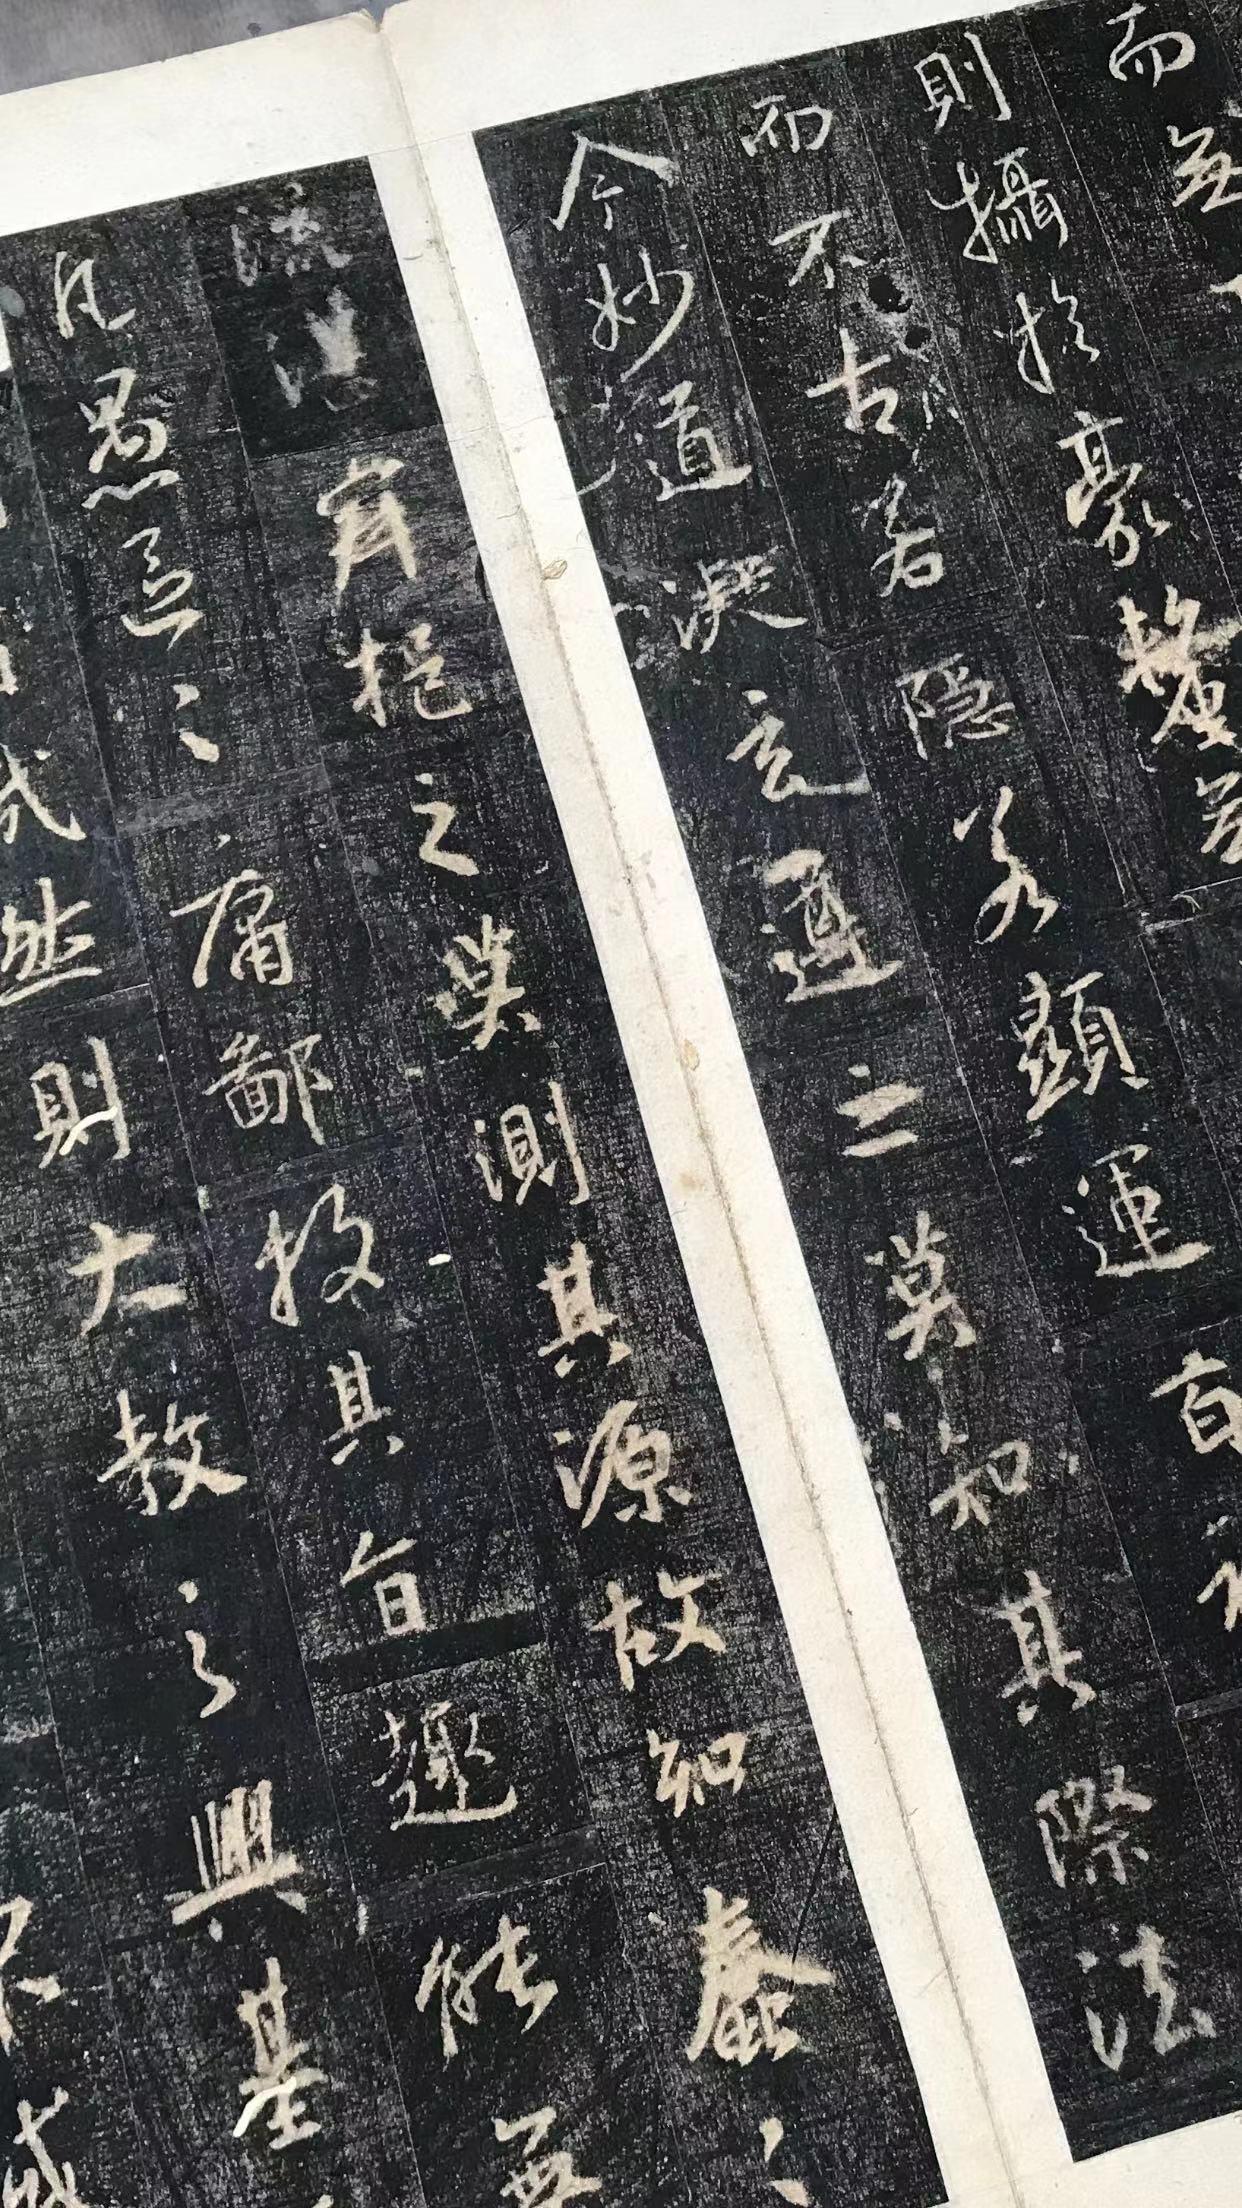 而無
則攝於豪釐無
而不古若隱若顯運百
今妙道凝玄遵之莫知其際法
流湛寂挹之莫測其源故知蠢〻
凡愚區〻庸鄙投其旨趣能無
則大教之興基
然